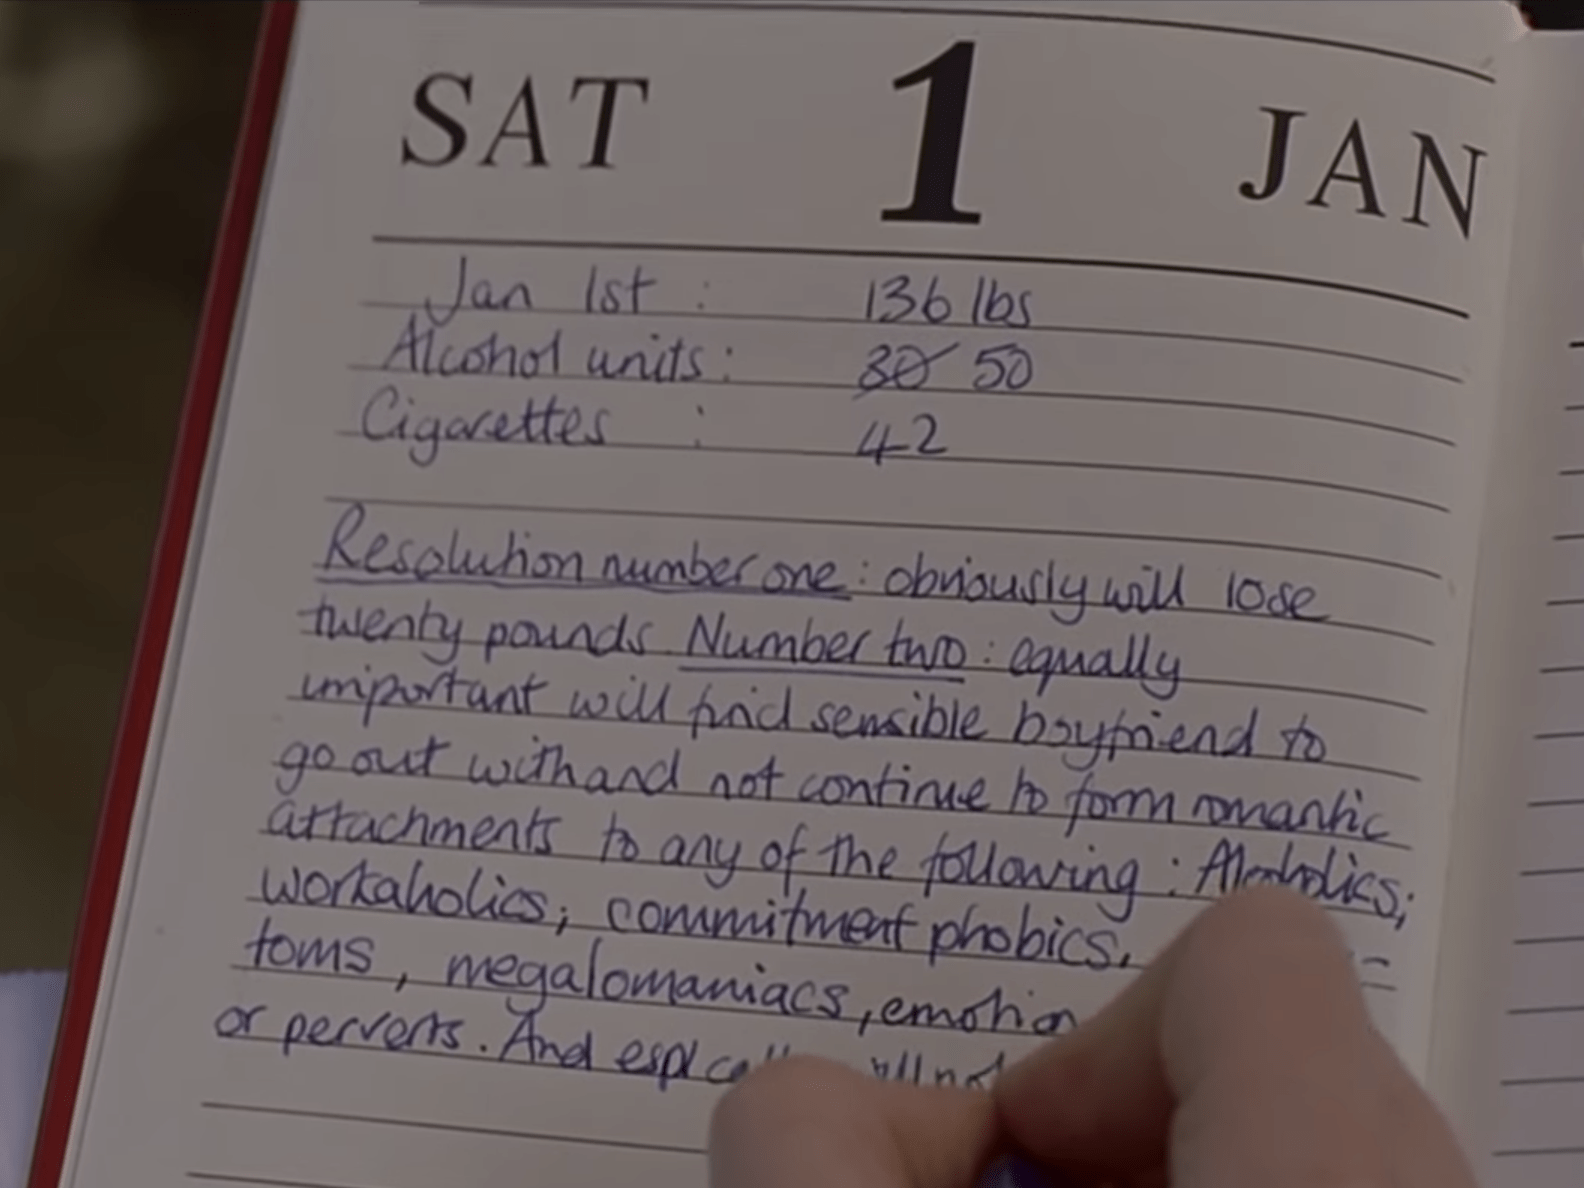 SAT 1 JAN
Jan 1st : 136 lbs
Alcohol units : 30 50
Cigarettes : 42
Resolution number one : obviously will lose
twenty pounds. Number two : equally
important will find sensible boyfriend to
go out with and not continue to form romantic
attachments to any of the following : Alcoholics;
workaholics; commitment phobics,
toms, megalomaniacs,
or perverts. And not